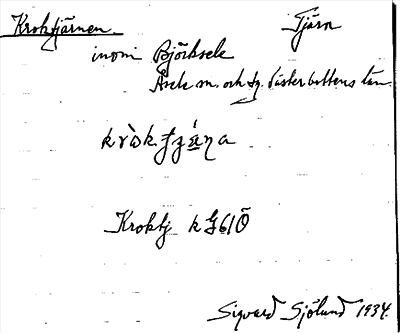 Kroktjärnen Tjärn
inom Björksele
Åsele m. och tg. Västerbottens län
Kroktj k G61Ö
Sigvard Sjölund 1934.